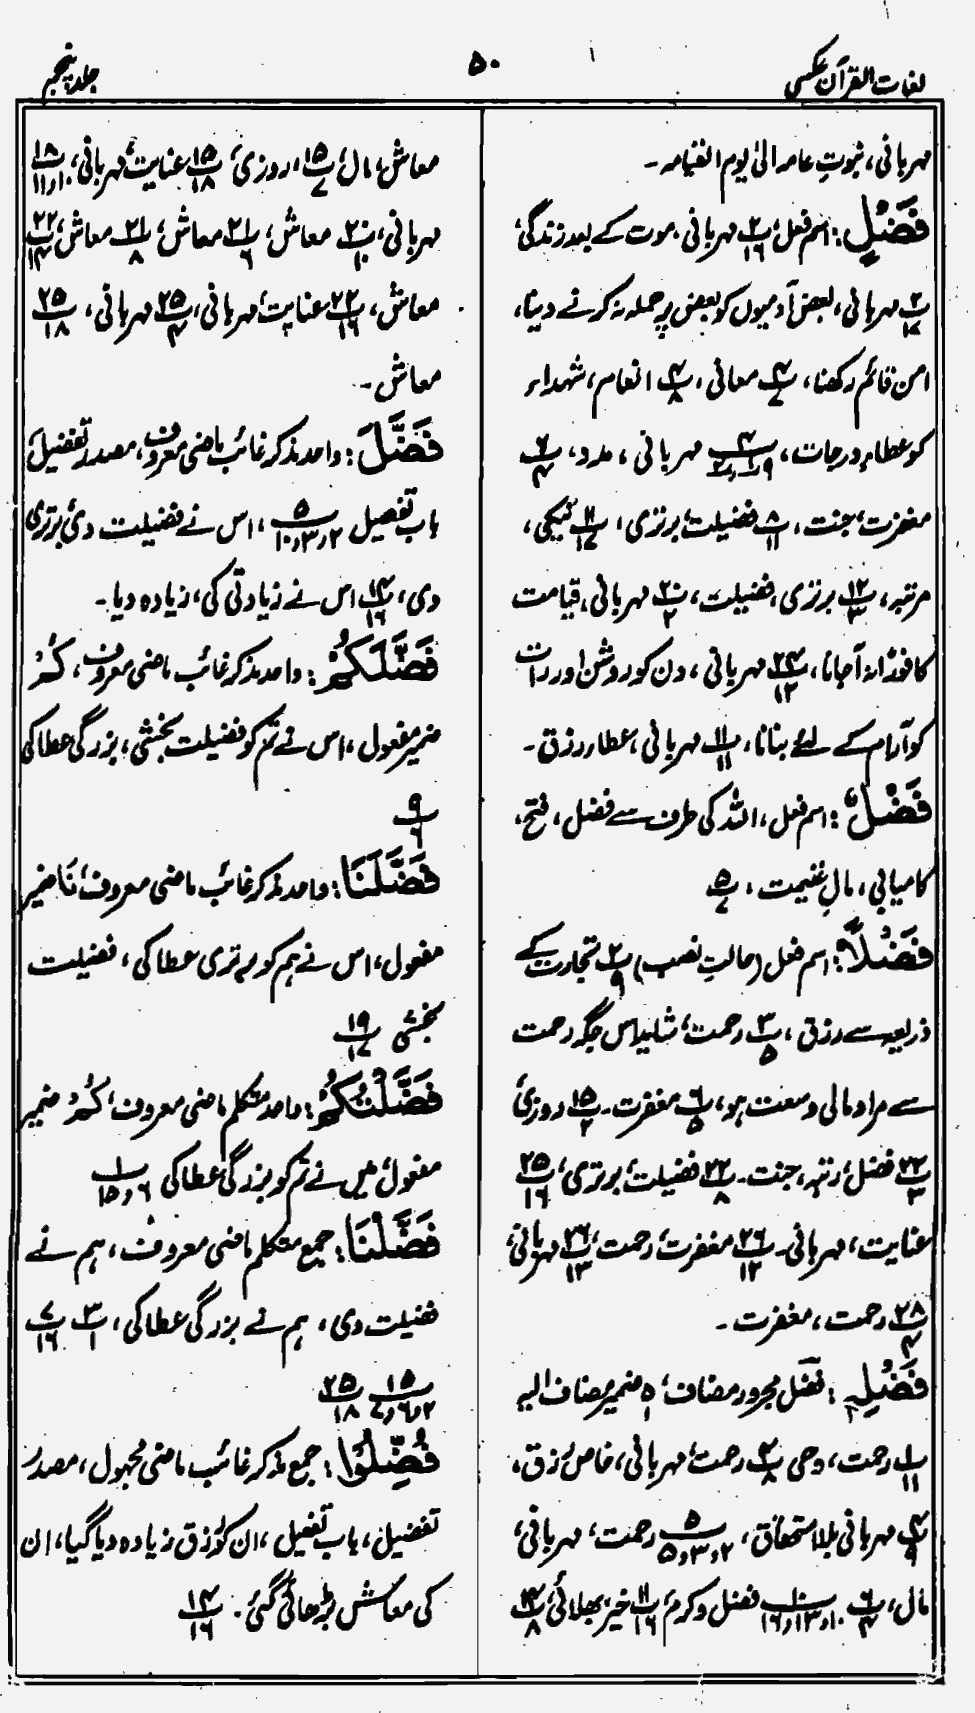 لغات القرآن عکسی
۵۰
جلد پنجم
مہربانی، نبوتِ عامہ الیٰ یوم القیامہ۔
فَضْلٍ: اسم فعل، پ۲/۱۶ مہربانی۔ موت کے بعد زندگی،
پ۲/۱۷ مہربانی، بعض آدمیوں کو بعض پر حملہ نہ کرنے دینا،
امن قائم رکھنا، پ۴/۷ معافی، پ۴/۸ انعام، شہداء
کو عطاءِ درجات، مہربانی، مدد، پ۶/۴
مغفرت، جنت، پ۸/۱۱ فضیلت، برتری، پ۱۱/۱۷ نیکی،
مرتبہ، پ۱۲/۳ برتری، فضیلت، پ۲۰/۲ مہربانی، قیامت
کا فوراً نہ آجانا، پ۲۴/۱۲ مہربانی، دن کو روشن اور رات
کو آرام کے لئے بنانا، پ۱۱/۱۱ مہربانی، عطاء رزق۔
فَضْلٌ: اسم فعل، اللہ کی طرف سے فضل، فتح،
کامیابی، مالِ غنیمت، پ۵/۷
فَضْلًا: اسم فعل (حالتِ نصب) پ۲/۹ تجارت کے
ذریعہ سے رزق، پ۳/۵ رحمت، شاید اس جگہ رحمت
سے مراد مالی وسعت ہو، پ۶/۵ مغفرت۔ پ۱۵/۲ روزی،
پ۲۲/۳ فضل، رتبہ، جنت۔ پ۲۲/۸ فضیلت، برتری، پ۲۵/۱۶
عنایت، مہربانی۔ پ۲۶/۱۲ مغفرت، رحمت، پ۲۶/۱۳ مہربانی،
پ۲۸/۴ رحمت، مغفرت۔
فَضْلِہٖ: فضل مجرور مضاف، ہ ضمیر مضاف الیہ
پ۱/۱۱ رحمت، وحی پ۴/۸ رحمت، مہربانی، خاص رزق،
پ۴/۹ مہربانی بلا استحقاق، پ۵/۲و۳و۵ رحمت، مہربانی،
مال، پ۶/۴ پ۱۰/۱۰و۱۳و۱۶ فضل و کرم، پ۱۱/۱۶ خیر، بھلائی، پ۱۴/۸
معاش، مال، پ۱۵/۷، روزی، پ۱۵/۱۸ عنایت، مہربانی، پ۱۸/۱۰و۱۱
مہربانی، پ۲۰/۱۰ معاش، پ۲۱/۶ معاش، پ۲۱/۸ معاش، پ۲۲/۱۴
معاش، پ۲۲/۱۶ عنایت، مہربانی، پ۲۵/۴ مہربانی، پ۲۵/۱۸
معاش۔
فَضَّلَ: واحد مذکر غائب ماضی معروف، مصدر تفضیل،
باب تفعیل پ۵/۲و۳و۱۰، اس نے فضیلت دی، برتری
دی، پ۱۴/۱۶ اس نے زیادتی کی، زیادہ دیا۔
فَضَّلَکُمْ: واحد مذکر غائب ماضی معروف، کُمْ
ضمیر مفعول، اس نے تم کو فضیلت بخشی، بزرگی عطا کی
پ۹/۶
فَضَّلَنَا: واحد مذکر غائب ماضی معروف، نَا ضمیر
مفعول، اس نے ہم کو برتری عطا کی، فضیلت
بخشی پ۱۹/۱۷
فَضَّلْتُکُمْ: واحد متکلم ماضی معروف، کُمْ ضمیر
مفعول، میں نے تم کو بزرگی عطا کی پ۱/۶و۱۵
فَضَّلْنَا: جمع متکلم ماضی معروف، ہم نے
فضیلت دی، ہم نے بزرگی عطا کی، پ۳/۱ پ۷/۱۶
پ۱۵/۲و۶و۷ پ۲۵/۱۸
فُضِّلُوْا: جمع مذکر غائب ماضی مجہول، مصدر
تفضیل، باب تفعیل، ان کو رزق زیادہ دیا گیا، ان
کی معاش بڑھائی گئی۔ پ۱۴/۱۶